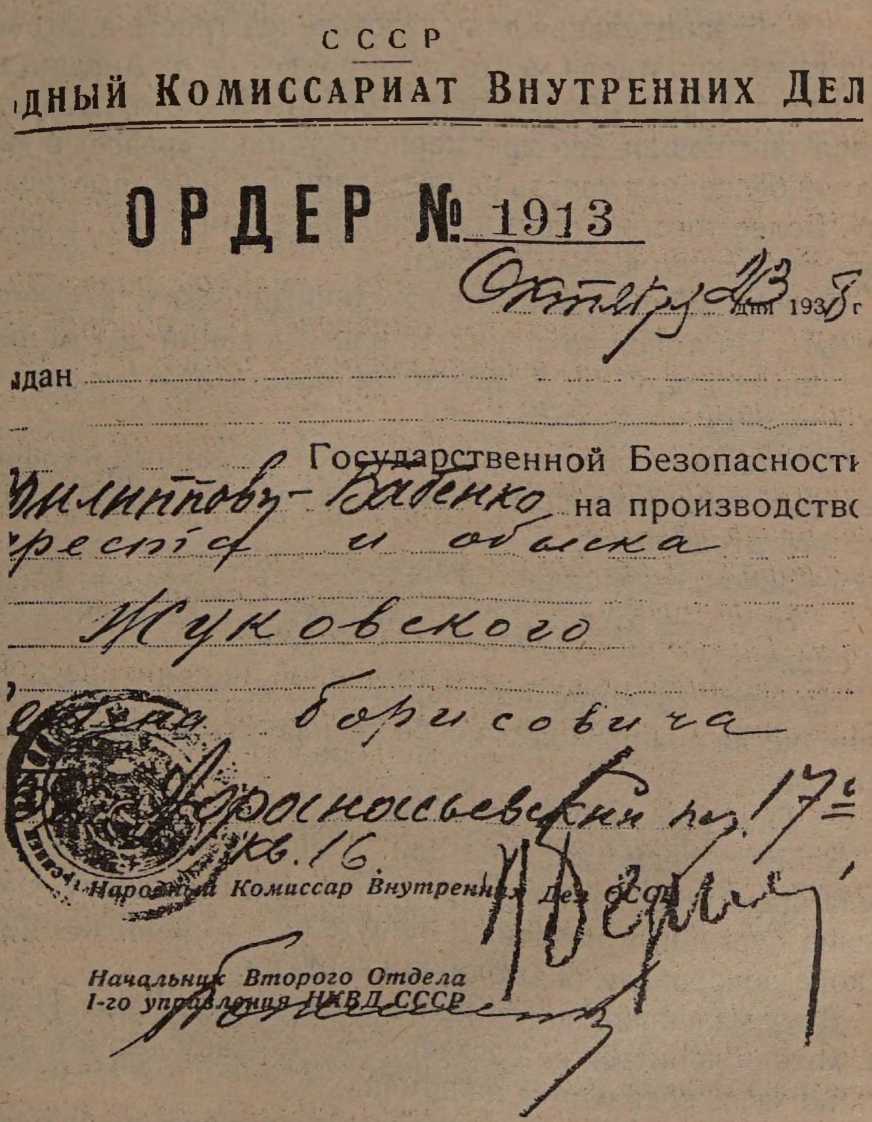 СССР
дный Комиссариат Внутренних Дел
ОРДЕР № 1913
Октября 23 дня 1938 г
ыдан
Государственной Безопасности
Филиппову-Бабенко на производство
ареста и обыска
Жуковского
Борисовича
Б. Афанасьевский пер. 17
кв. 16.
Народный Комиссар Внутренних Дел СССР
Начальник Второго Отдела
I-го управления НКВД СССР